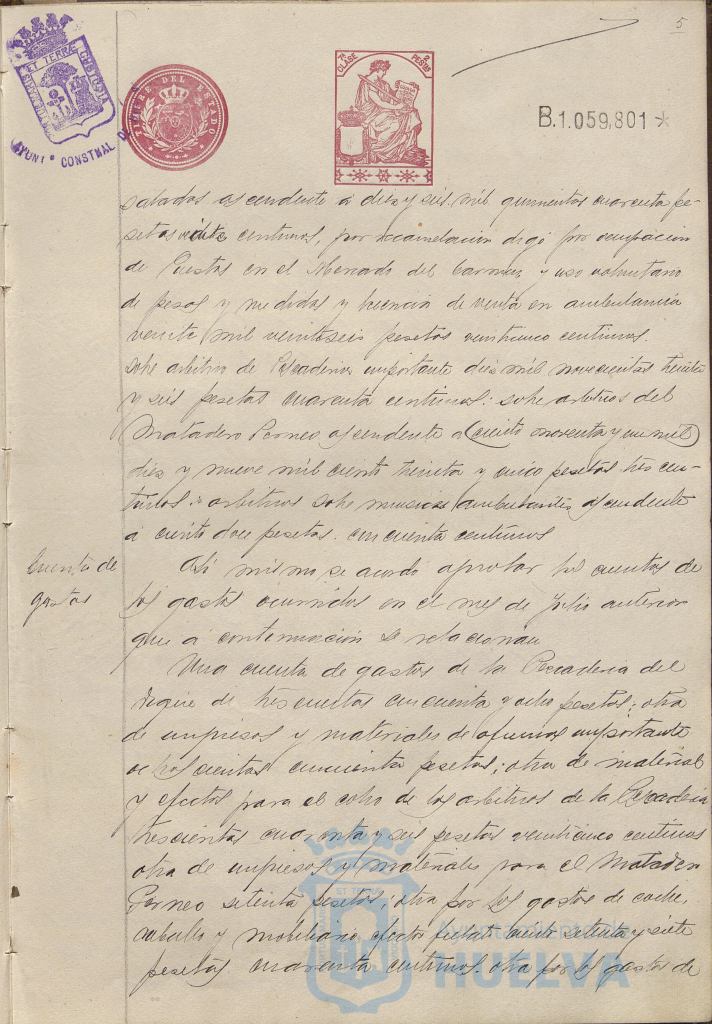 5
ET TERRÆ CUSTODIA
AYUNT° CONSTNAL D
TIMBRE DEL ESTADO
7ª CLASE 2 PESTAS
B.1.059,801*
salados ascendente a diez y seis mil quinientos cuarenta pe-
setas veinte centimos, por recaudacion digo por ocupacion
de Puestos en el Mercado del Carmen, y uso voluntario
de pesas y medidas y licencia de venta en ambulancia
veinte mil veintiseis pesetas veinticinco centimos.
sobre arbitrio de Pescaderia importante diez mil novecientas treinta
y seis pesetas cuarenta centimos: sobre arbitrios del
Matadero Perneo ascendente a (ciento noventa y un mil)
diez y nueve mil ciento treinta y cinco pesetas tres cen-
timos: arbitrios sobre musicas ambulantes ascendente
a ciento doce pesetas cincuenta centimos
Cuenta de
gastos
Asi mismo se acordó aprobar las cuentas de
los gastos ocurridos en el mes de Julio anterior
que a continuacion se relacionan
Una cuenta de gastos de la Pescaderia del
de trescientas cincuenta y ocho pesetas; otra
de impresos y materiales de oficinas importante
ochocientas cincuenta pesetas; otra de material
y efectos para el cobro de los arbitrios de la Pescaderia
trescientas cuarenta y seis pesetas veinticinco centimos
otra de impresos y materiales para el Matadero
Perneo setenta pesetas; otra por los gastos de coche,
caballo y mobiliario, efecto ciento setenta y siete
pesetas cuarenta centimos. otra por los gastos de
Ayuntamiento de
HUELVA